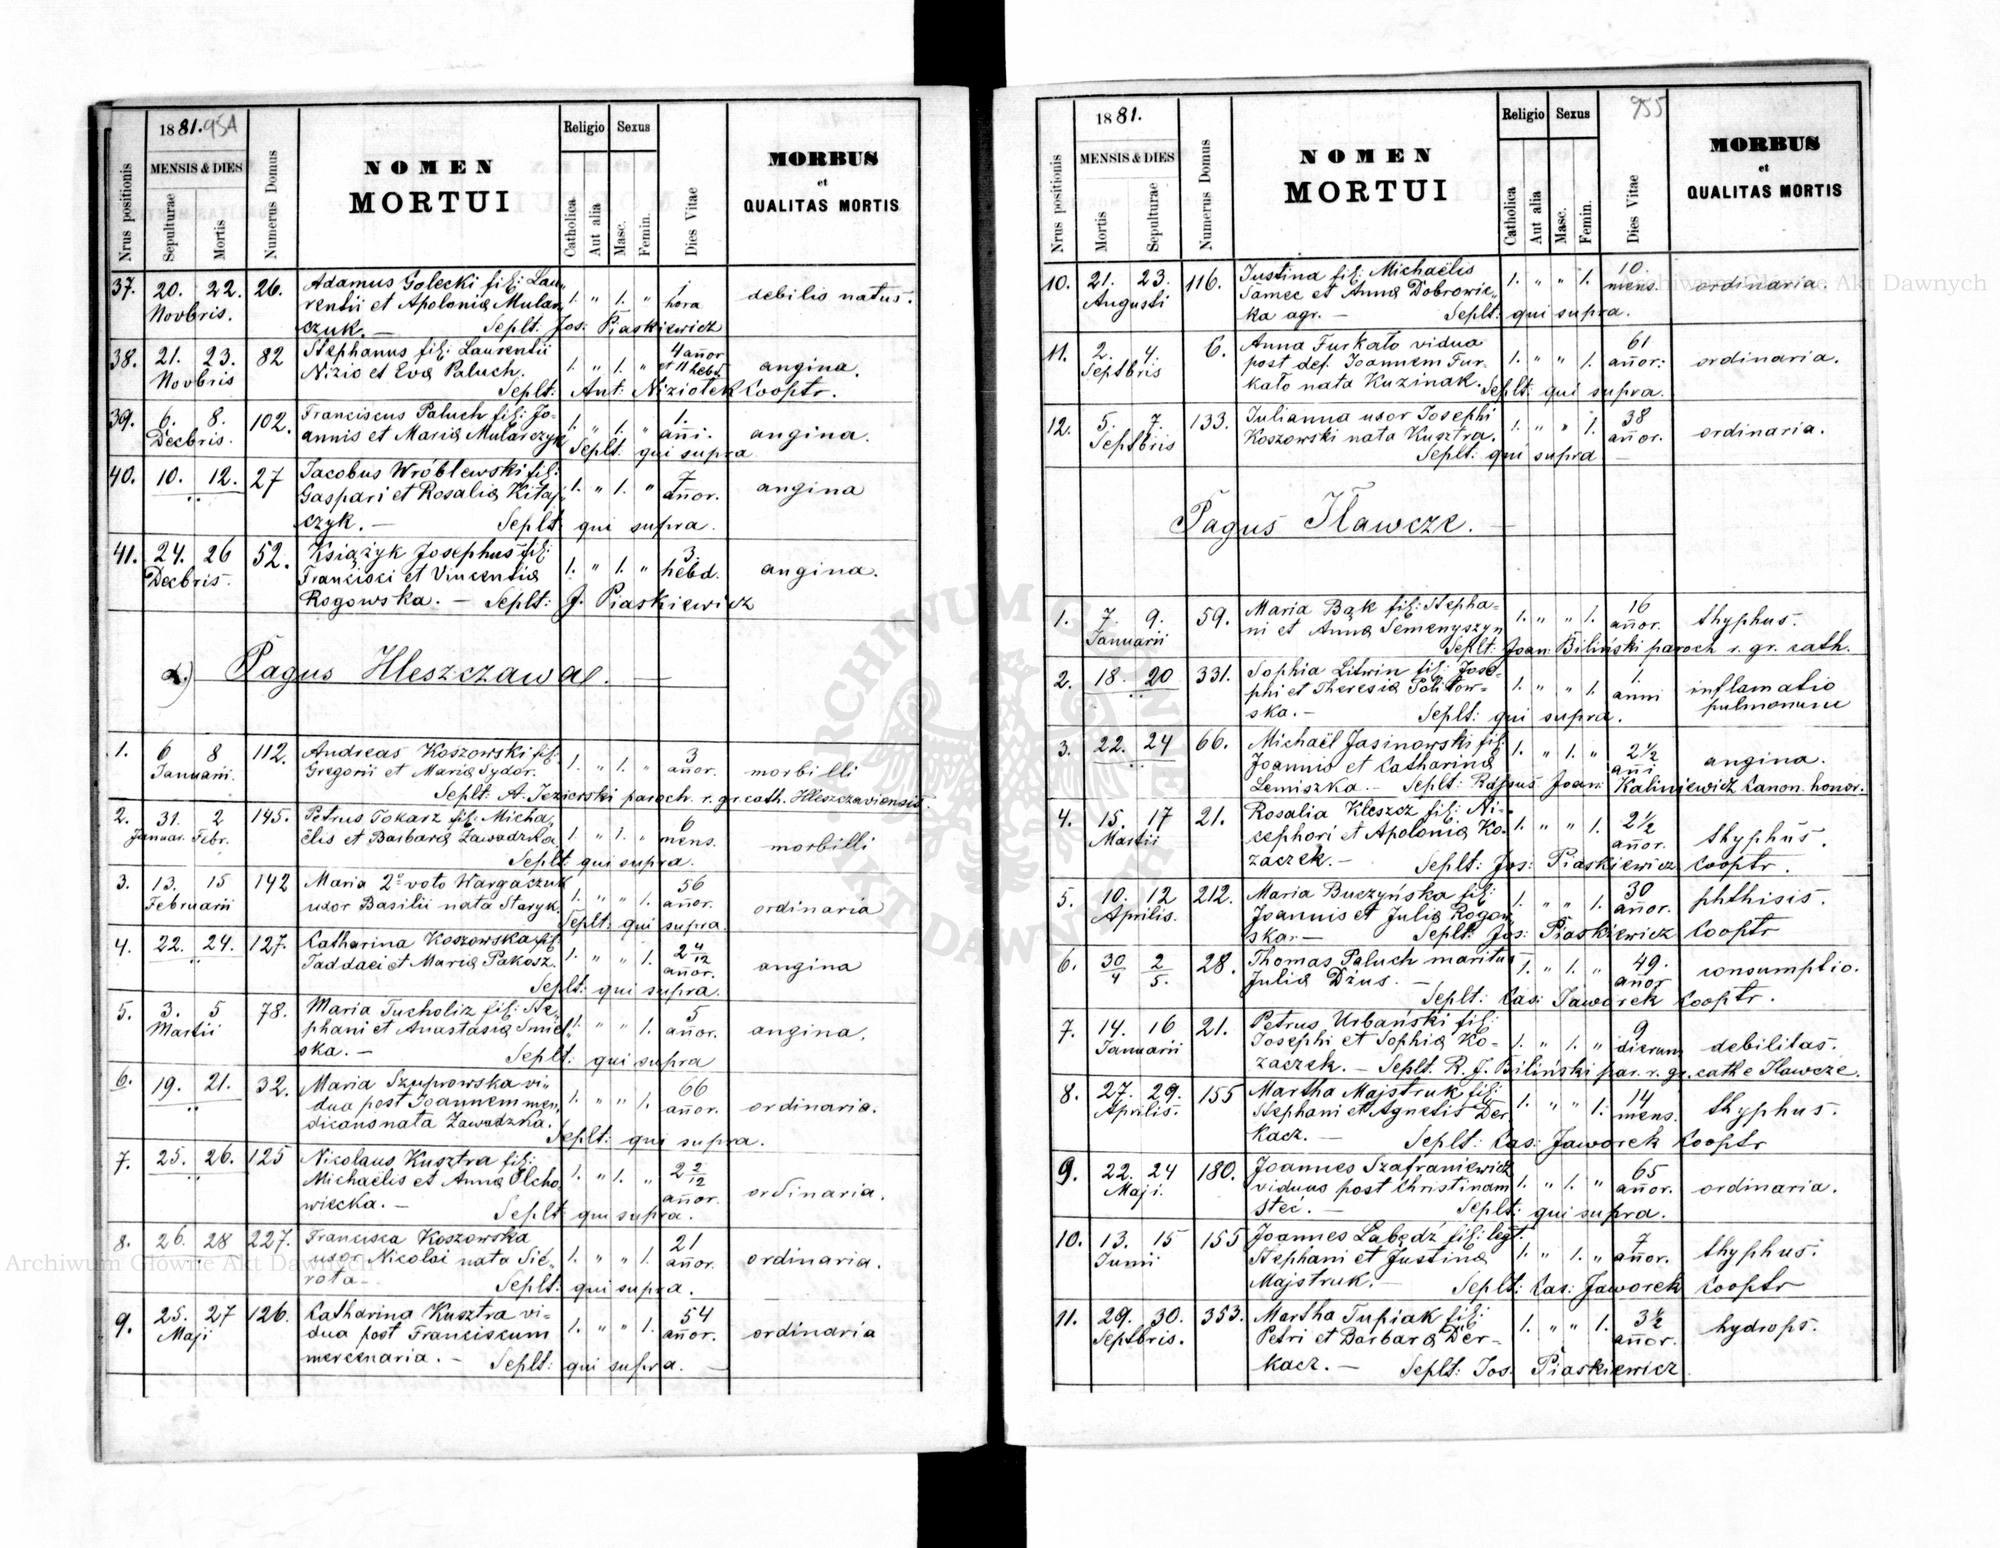 1881. 954
MENSIS & DIES
Nrus positionis
Sepulturae
Mortis
Numerus Domus
NOMEN
MORTUI
Religio
Sexus
Catholica
Aut alia
Masc.
Femin.
Dies Vitae
MORBUS
et
QUALITAS MORTIS
37. 20. 22. 26. Adamus Golecki fil: Lau- 1. " 1. " 1 debilis natus.
Novbris. rentii et Apolonia Mular- hora
czuk. — Seplt. Jos: Piaskiewicz
38. 21. 23. 82 Stephanus fil: Laurentii 1. " 1. " 4 añor angina.
Novbris Nizio et Eva Paluch. et 11 hebd.
Seplt: Ant: Niziołek Cooptr.
39. 6. 8. 102. Franciscus Paluch fil: Jo- 1. " 1. " 1. angina.
Decbris. annis et Maria Mularczyk añi.
Seplt: qui supra
40. 10. 12. 27 Jacobus Wróblewski fil: 1. " 1. " 7 angina
" Gaspari et Rosalia Kitaj- añor.
czyk. — Seplt qui supra.
41. 24. 26 52. Książyk Josephus fil: 1. " 1. " 3. angina.
Decbris. Francisci et Vincentia hebd.
Rogowska. — Seplt: J. Piaskiewicz
d.) Pagus Hleszczawae. —
1. 6 8 112. Andreas Koszowski fil: 1. " 1. " 3 morbilli
Januarii. Gregorii et Maria Sydor. añor.
Seplt: A. Jezierski paroch. r. gr. cath. Hleszczaviensis.
2. 31. 2 145. Petrus Tokarz fil: Micha- 1. " 1. " 6 morbilli
Januar. Febr. elis et Barbara Zawadzka mens.
Seplt: qui supra.
3. 13. 15 142 Maria 2º voto Wargaczuk 1. " " 1. 56 ordinaria
Februarii uxor Basilii nata Staryk. añor.
Seplt: qui supra.
4. 22. 24. 127. Catharina Koszowska fil: 1. " " 1. 2 4/12 angina
" Taddaei et Maria Pakosz. añor.
Seplt: qui supra.
5. 3. 5 78. Maria Tucholiz fil: Ste- 1. " " 1. 5 angina.
Martii phani et Anastasia Smiel- añor.
ska. — Seplt: qui supra
6. 19. 21. 32. Maria Szuprowska vi- 1. " " 1. 66 ordinaria.
" dua post Joannem men- añor.
dicans nata Zawadzka.
Seplt: qui supra.
7. 25. 26. 125 Nicolaus Kusztra fil: 1. " 1. " 2 2/12 ordinaria.
" Michaëlis et Anna Olcho- añor.
wiecka. — Seplt: qui supra.
8. 26. 28 227. Francisca Koszowska 1. " " 1. 21 ordinaria.
" uxor Nicolai nata Sie- añor.
rota — Seplt: qui supra.
9. 25. 27 126. Catharina Kusztra vi- 1. " " 1. 54 ordinaria
Maji dua post Franciscum añor.
mercenaria. — Seplt: qui supra. —
1881. 955
MENSIS & DIES
Nrus positionis
Mortis
Sepulturae
Numerus Domus
NOMEN
MORTUI
Religio
Sexus
Catholica
Aut alia
Masc.
Femin.
Dies Vitae
MORBUS
et
QUALITAS MORTIS
10. 21. 23. 116. Justina fil: Michaëlis 1. " " 1. 10. ordinaria.
Augusti Samec et Anna Dobrowie- mens.
ka agr. — Seplt: qui supra.
11. 2. 4. 6. Anna Furkało vidua 1. " " 1. 61 ordinaria.
Septbris post def. Joannem Fur- añor:
kało nata Kuzinak. Seplt: qui supra.
12. 5. 7. 133. Julianna uxor Josephi 1. " " 1. 38 ordinaria.
Septbris Koszowski nata Kusztra. añor.
Seplt: qui supra —
Pagus Iławcze. —
1. 7. 9. 59. Maria Bąk fil: Stepha- 1. " " 1. 16 thyphus.
Januarii ni et Anna Semenyszyn añor.
Seplt: Joan: Biliński paroch r. gr. cath.
2. 18. 20 331. Sophia Litwin fil: Jose- 1. " " 1. 1 inflamatio
" phi et Theresia Politow- anni pulmonum
ska. — Seplt: qui supra.
3. 22. 24 66. Michaël Jasinowski fil: 1. " 1. " 2 1/2 angina.
" Joannis et Catharina añi
Lemiszka. — Seplt: Rdssus Joan: Kaliniewicz Canon. honor.
4. 15. 17 21. Rosalia Kleszcz fil: Ni- 1. " " 1. 2 1/2 thyphus.
Martii cephori et Apolonia Ko- añor.
zaczek. — Seplt: Jos: Piaskiewicz Cooptr.
5. 10. 12 212. Maria Buczyńska fil: 1. " " 1. 30 phthisis.
Aprilis. Joannis et Julia Rogow- añor.
ska. — Seplt: Jos: Piaskiewicz Cooptr
6. 30/4 2/5. 28. Thomas Paluch maritus 1. " 1. " 49. consumptio.
Julia Dżus. — añor
Seplt: Cas: Jaworek Cooptr.
7. 14. 16 21. Petrus Urbański fil: 1. " 1. " 9 debilitas.
Januarii Josephi et Sophia Ko- dierum
zaczek. — Seplt. R. J. Biliński par. r. gr. cath e Iławcze.
8. 27. 29. 155 Martha Majstruk fil: 1. " " 1. 14 thyphus.
Aprilis. Stephani et Agnetis Der- mens.
kacz. — Seplt: Cas: Jaworek Cooptr
9. 22. 24 180. Joannes Szafraniewicz 1. " 1. " 65 ordinaria.
Maji. viduus post Christinam añor.
Stec. — Seplt: qui supra.
10. 13. 15 155 Joannes Łabędź fil: legt. 1. " 1. " 7 thyphus.
Junii Stephani et Justina añor.
Majstruk. — Seplt: Cas: Jaworek Cooptr
11. 29. 30. 353. Martha Tupiak fil: 1. " " 1. 3 1/2 hydrops.
Septbris. Petri et Barbara Der- añor.
kacz. — Seplt: Jos: Piaskiewicz
ARCHIWUM GŁÓWNE AKT DAWNYCH
Archiwum Główne Akt Dawnych
Archiwum Główne Akt Dawnych